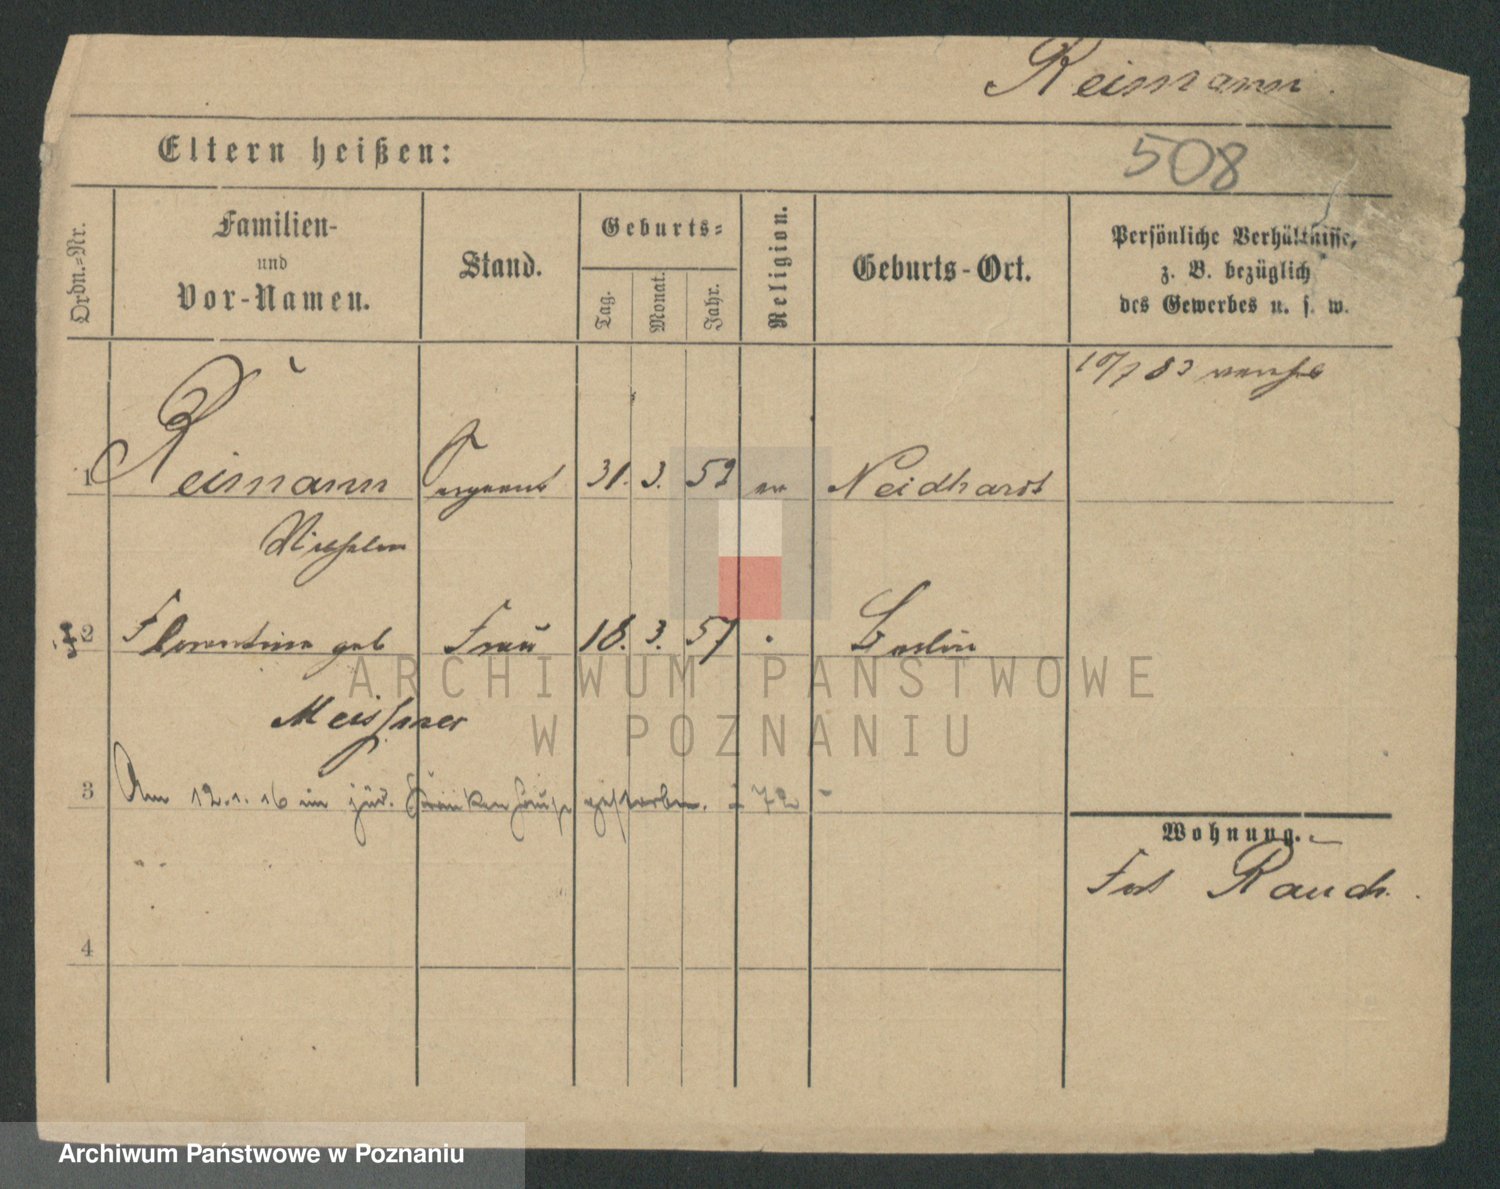 Reimann.
Eltern heißen:
508
Ordn.-Nr.
Familien-
und
Vor-Namen.
Stand.
Geburts-
Tag.
Monat.
Jahr.
Religion.
Geburts-Ort.
Persönliche Verhältnisse,
z. B. bezüglich
des Gewerbes u. s. w.
10/7 83
1 Reimann Sergeant 31. 3. 52 ev Neidhardt
Wilhelm
2 Florentine geb Frau 18. 3. 57 Berlin
Meissner
3 Am 12.1.16 im jüd. Krankenhause gestorben. 72
Wohnung.
Fort Rauch.
4
ARCHIWUM PAŃSTWOWE
W POZNANIU
Archiwum Państwowe w Poznaniu